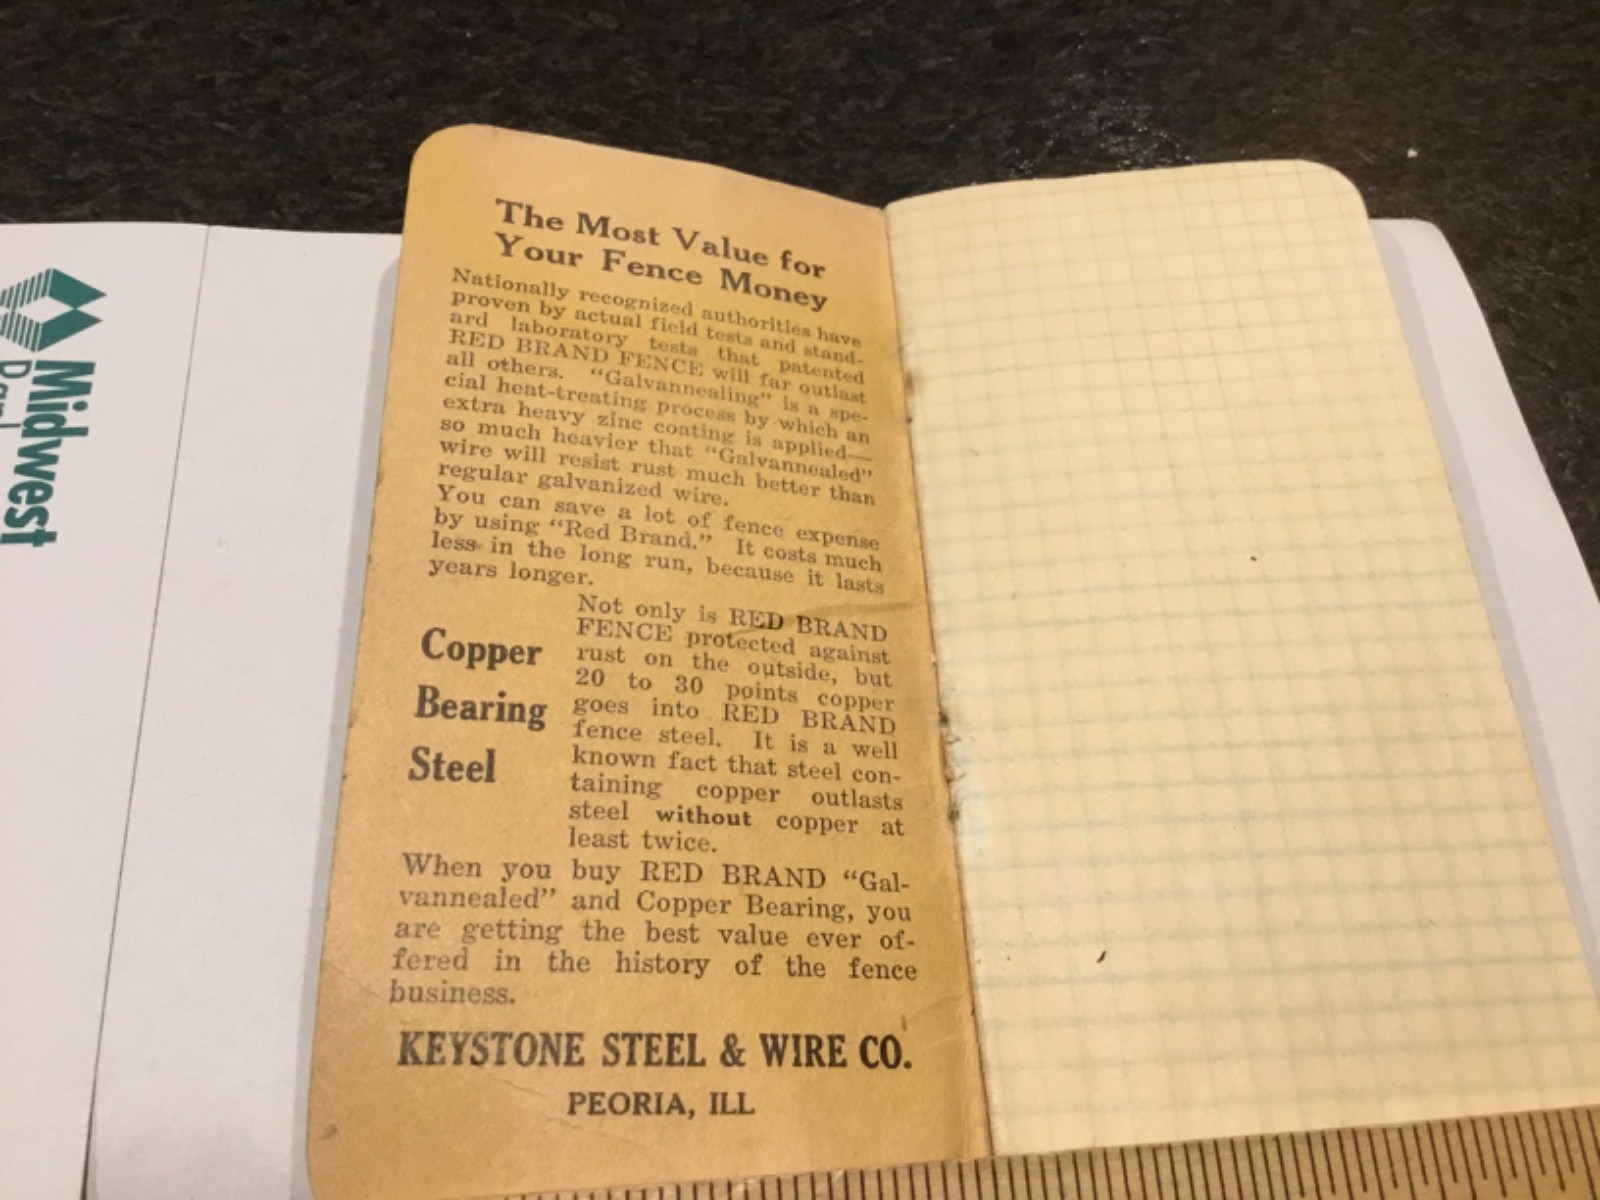 The Most Value for
Your Fence Money
Nationally recognized authorities have
proven by actual field tests and stand-
ard laboratory tests that patented
RED BRAND FENCE will far outlast
all others. "Galvannealing" is a spe-
cial heat-treating process by which an
extra heavy zinc coating is applied—
so much heavier that "Galvannealed"
wire will resist rust much better than
regular galvanized wire.
You can save a lot of fence expense
by using "Red Brand." It costs much
less in the long run, because it lasts
years longer.
Copper
Bearing
Steel
Not only is RED BRAND
FENCE protected against
rust on the outside, but
20 to 30 points copper
goes into RED BRAND
fence steel. It is a well
known fact that steel con-
taining copper outlasts
steel without copper at
least twice.
When you buy RED BRAND "Gal-
vannealed" and Copper Bearing, you
are getting the best value ever of-
fered in the history of the fence
business.
KEYSTONE STEEL & WIRE CO.
PEORIA, ILL
Midwest